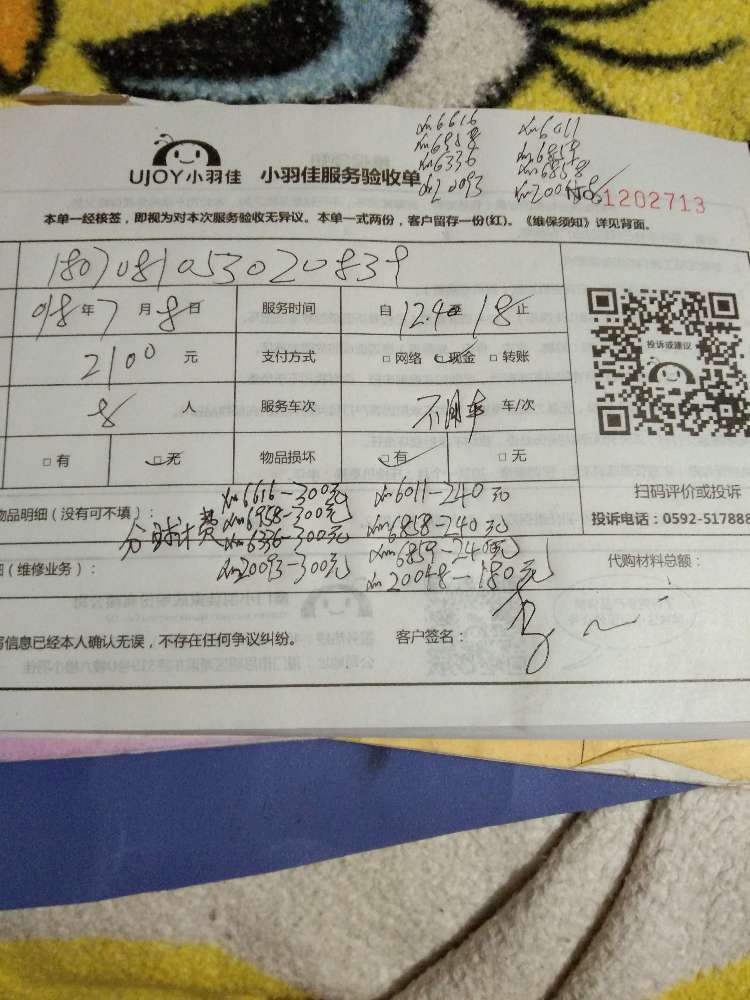 xm6616 xm6011
xm6958 xm6859
xm6336 xm6858
xm20093 xm20048
UJOY小羽佳 小羽佳服务验收单
No 1202713
本单一经核签，即视为对本次服务验收无异议。本单一式两份，客户留存一份(红)。《维保须知》详见背面。
1807081053020839
18年7月8日 服务时间 自12.40至18止
投诉或建议
2100元 支付方式 □网络 □现金 □转账
8人 服务车次 不用车 车/次
□有 □无 物品损坏 □有 □无
扫码评价或投诉
投诉电话：0592-517888
物品明细（没有可不填）：
xm6616-300元 xm6011-240元
分球计费 xm6958-300元 xm6858-240元
xm6336-300元 xm6859-240元
（维修业务）： xm20093-300元 xm20048-180元
代购材料总额：
信息已经本人确认无误，不存在任何争议纠纷。 客户签名：